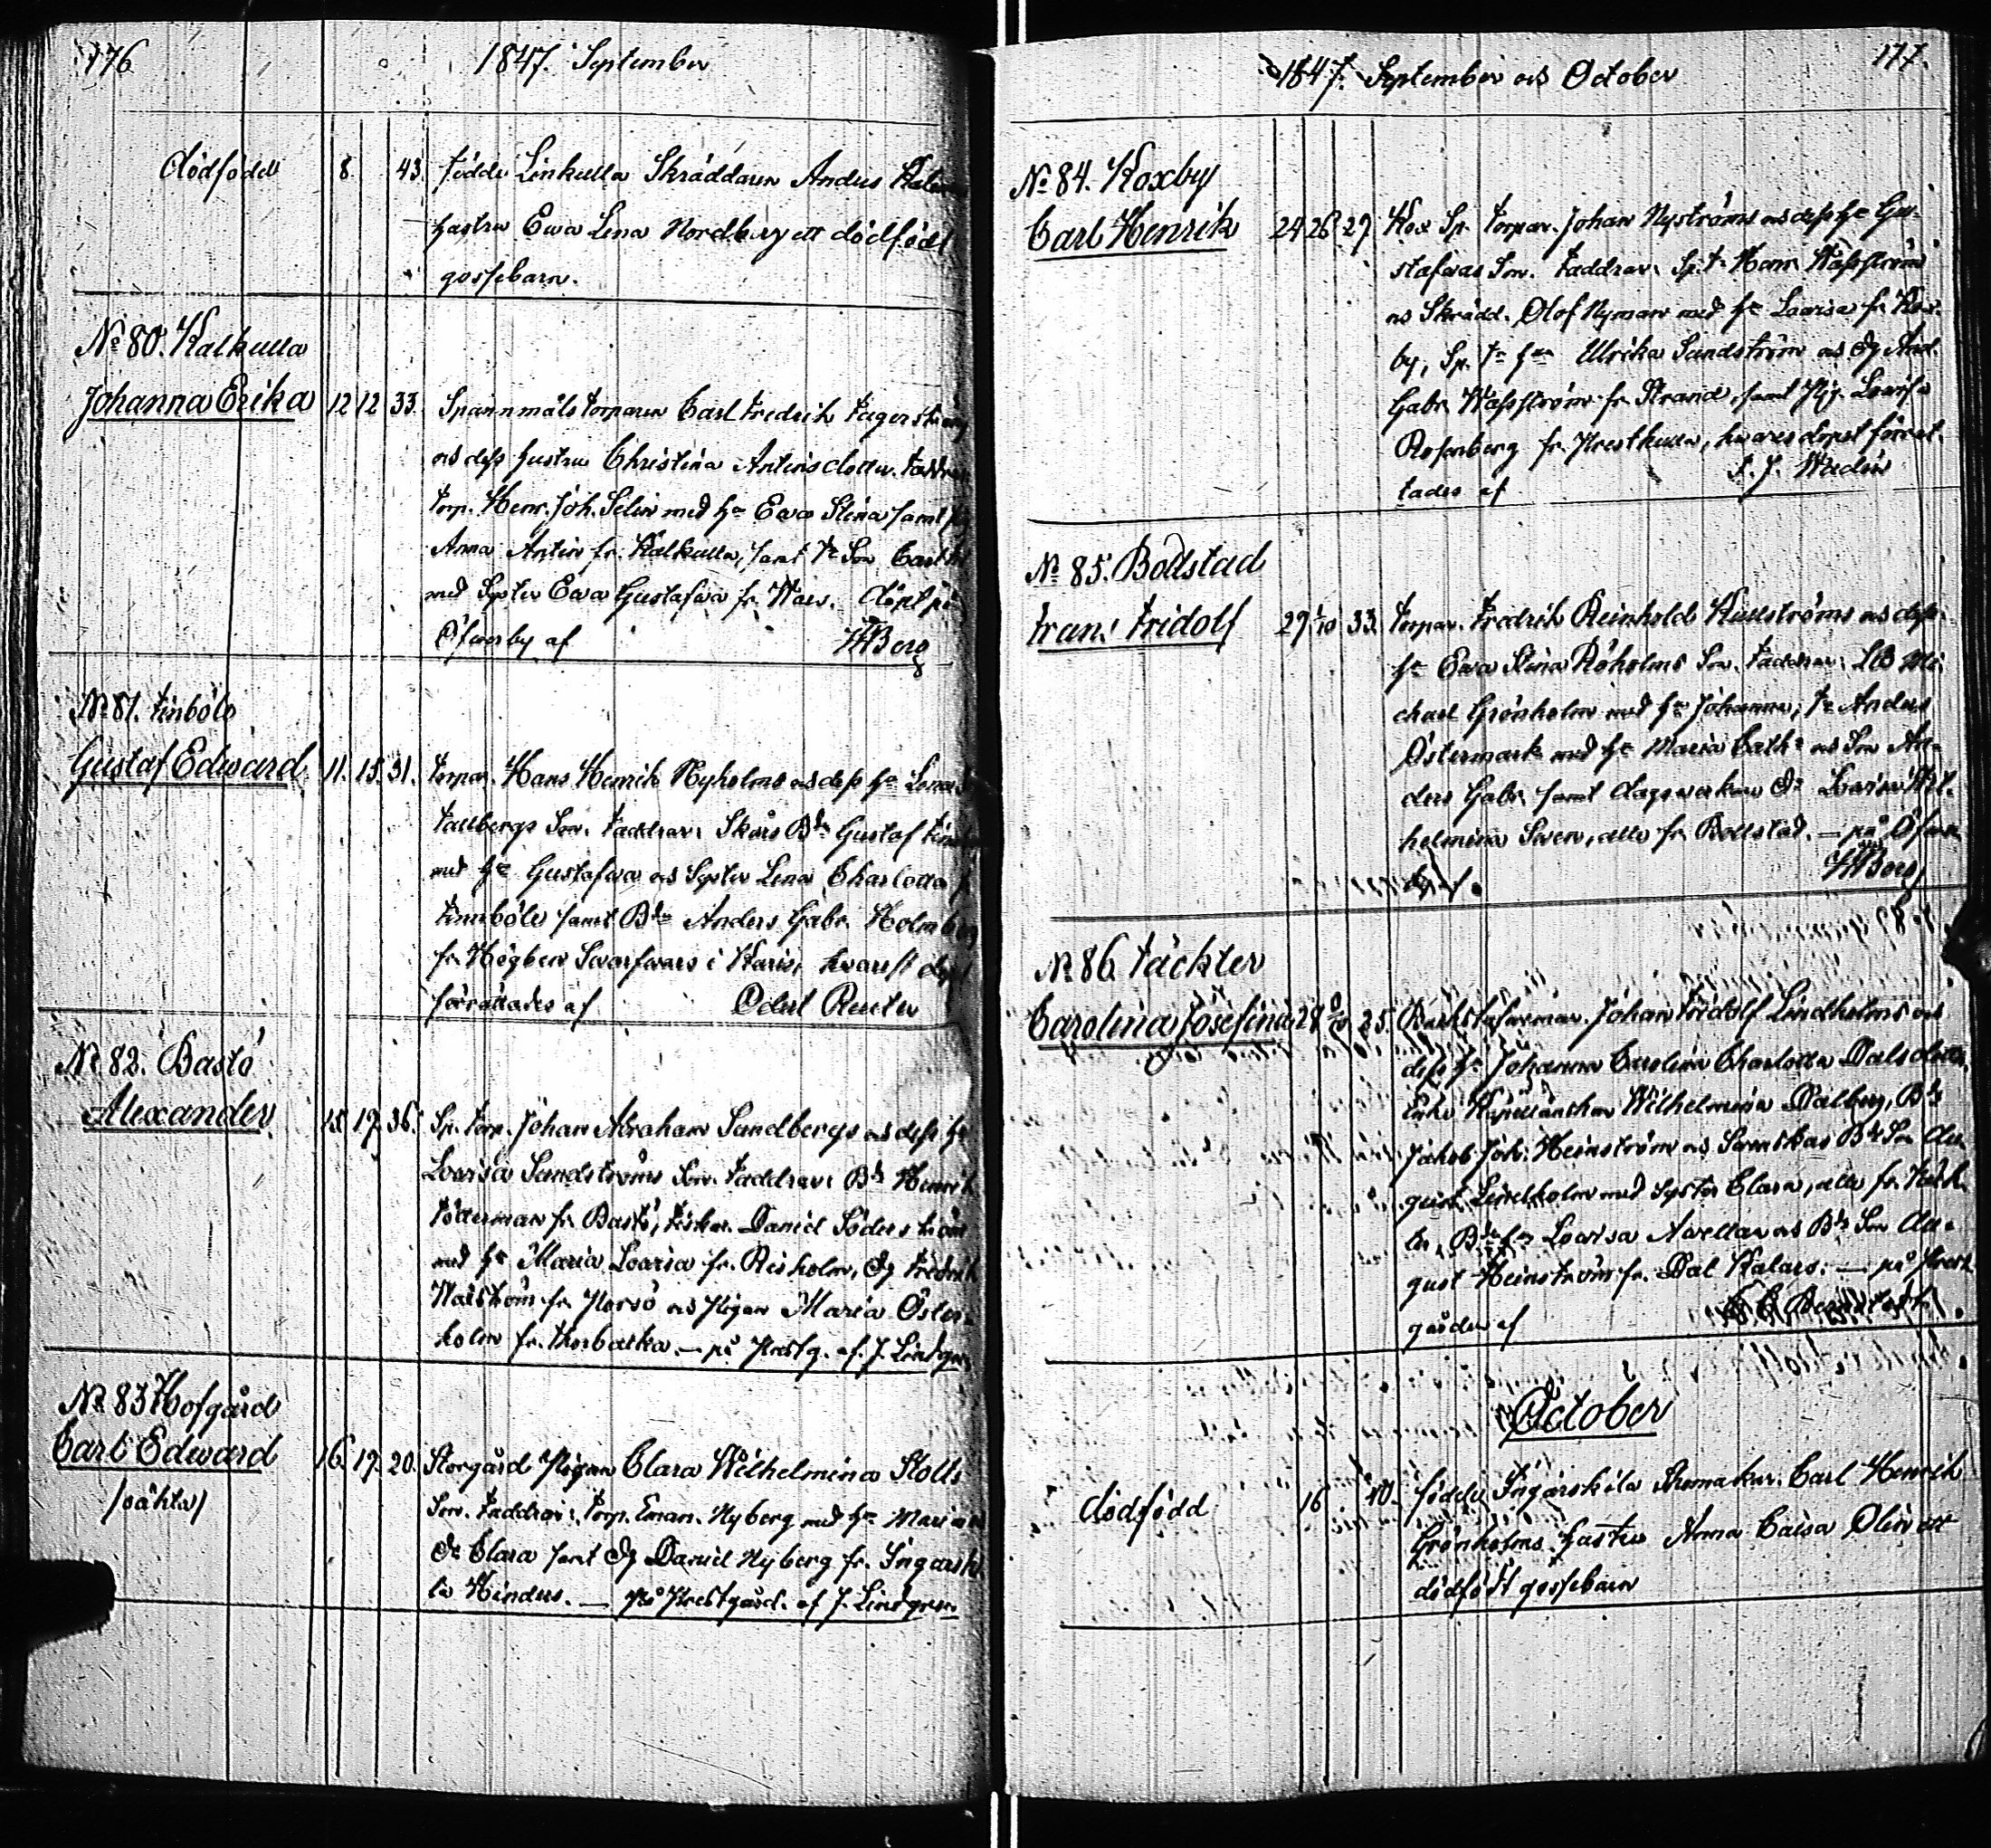 176
1847. September
dödfödd 8. 43. födde Linkulla Skräddaren Anders
hustru Ewa Lena Nordberg ett dödfödt
gossebarn.
No 80. Kalkulla
Johanna Erika 12 12 33. Spannmåls torparen Carl Fredrik Fagerström
os dess hustru Christina Antins dotter. Faddrar
torp. Henr. Joh. Selin med Hu Ewa Stina samt
Anna Antin fr. Kalkulla, samt Son Carl
med Syster Ewa Gustafva fr. döpt på
Öfverby af HBerg
No 81. Finböle
Gustaf Edward 11. 15. 31. torpar. Hans Henrik Nyholms os dess Hu Lena
Tallbergs Son. Faddrar: Skårs Bde Gustaf
med Hu Gustafva os Syster Lena Charlotta
Finnböle samt Bde Anders Gabr. Holmberg
fr. Högben Svarfvars i Karis, hvarest
förrättades af Odert Reuter
No 82. Bastö
Alexander 15. 19. 36. Sp. torp. Johan Abraham Sandbergs os dess Hu
Lovisa Sundströms Son. Faddrar: Bde Henrik
Töterman fr. Bastö, Daniel Söderström
med Hu Maria Lovisa fr. Risholm, Dg Fredrik
fr. Porsö os Pigan Maria Öster-
holm fr. Thorbacka. — på Prestg. af J. Lindgren
No 83 Hofgård
Carl Edward 16. 19. 20. Storgård Pigan Clara Wilhelmina Stolts
/oäkta/
Son. Faddrar: torp. Eman. Nyberg med Hu Maria
Dr Clara samt Dg Daniel Nyberg fr. Ingarski-
la Hinders. — på Prestgård. af J. Lindgren
177.
1847. September os October
No 84. Koxby
Carl Henrik 24 26 29 Kox Sp. torpar. Johan Nyströms os dess Hu Gu-
stafvas Son. Faddrar: Sp.t. Henr. Wassström
os Skrädd. Olof Nyman med Hu Lovisa fr. Kox-
by, Sp. Ulrika Sundström os Dg And.
Gabr. Wassström fr. Strand, samt Pig. Lovisa
Rosenberg fr. Prestkulla, hvares dopet förrät-
tades af F. J. Wadén
No 85. Bollstad
Frans Fridolf 29 1/10 33. Torpar. Fredrik Reinhold Kullströms os dess
Hu Ewa Stina Röholms Son. Faddrar: LB Mi-
chael Grönholm med Hu Johanna, Anders
Östermark med Hu Maria Cath. os Son An-
ders Gabr. samt Dr Lovisa Wil-
helmina Sven, alla fr. Bollstad. — på Öfver-
by af HBerg
No 86. Täckter
Carolina Josefina 28 25. Johan Fridolf Lindholms os
dess Hu Johanna Carolina Charlotta Dals dotter.
Enke Kapellänskan Wilhelmina Dalberg, Bde
Jakob Joh. Heinström os Bde Son Au-
gust Lindholm med Syster Clara, alla fr. Täck-
ter, Bde Lovisa Avellan os Bde Son Au-
gust Heinström fr. Dal Kalars. — på Prest-
gården af
October
dödfödd 16 40. födde Ingarskila Skomakar. Carl Henrik
Grönholms hustru Anna Caisa Olin ett
dödfödt gossebarn